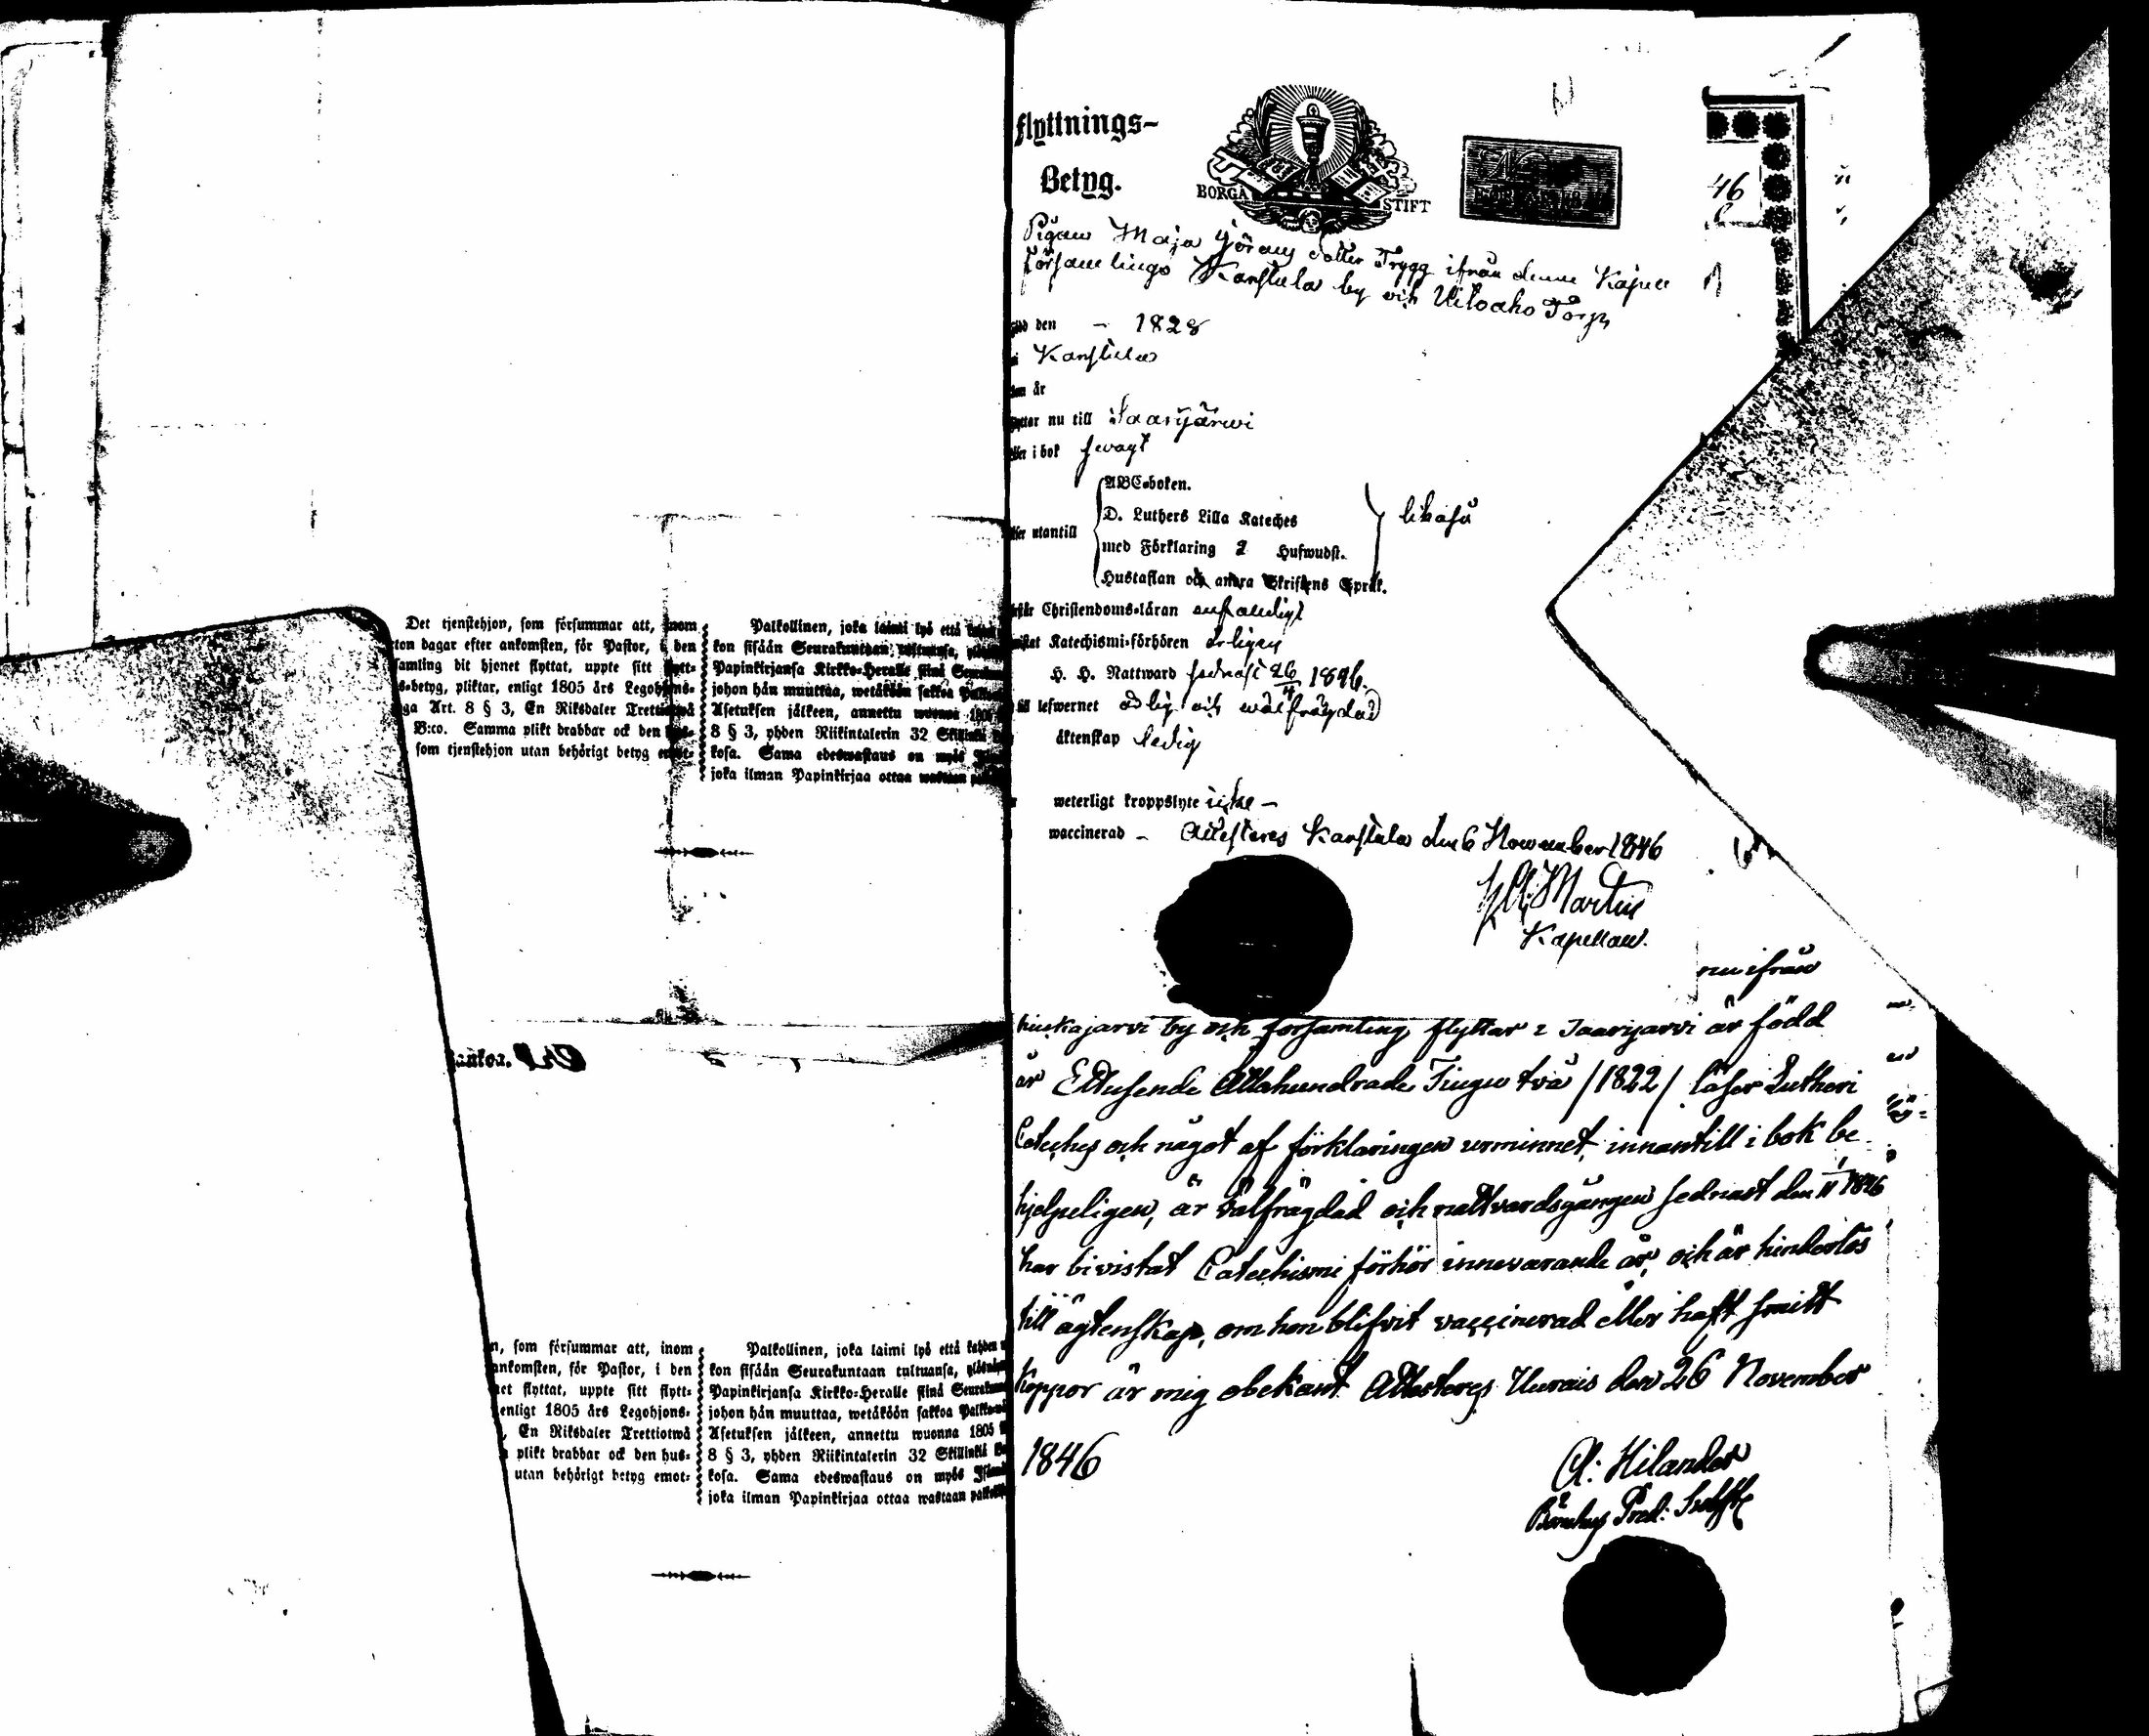 Det tjenstehjon, som försummar att, inom
ton dagar efter ankomsten, för Pastor, i den
samling dit hjonet flyttat, uppte sitt flytt-
s-betyg, pliktar, enligt 1805 års Legohjons-
ga Art. 8 § 3, En Riksdaler Trettiotwå
B:co. Samma plikt drabbar ock den hus-
som tjenstehjon utan behörigt betyg emot-
Palkollinen, joka laimi lyö että
kon sisään Seurakuntaan tultuansa,
Papinkirjansa Kirkko-Heralle siinä
johon hän muuttaa, wetäköön sakkoa
Asetuksen jälkeen, annettu wuonna 1805
8 § 3, yhden Riikintalerin 32 Skillinkiä
kosa. Sama edeswastaus on myös
joka ilman Papinkirjaa ottaa wastaan
n, som försummar att, inom
ankomsten, för Pastor, i den
net flyttat, uppte sitt flytt-
enligt 1805 års Legohjons-
, En Riksdaler Trettiotwå
plikt drabbar ock den hus-
utan behörigt betyg emot-
Palkollinen, joka laimi lyö että kahden
kon sisään Seurakuntaan tultuansa,
Papinkirjansa Kirkko-Heralle siinä
johon hän muuttaa, wetäköön sakkoa
Asetuksen jälkeen, annettu wuonna 1805
8 § 3, yhden Riikintalerin 32 Skillinkiä
kosa. Sama edeswastaus on myös
joka ilman Papinkirjaa ottaa wastaan
flyttnings-
Betyg.
BORGÅ STIFT
Pigan Maja Görans dotter Trygg ifrån denne Kapell
församlings Karstula by och Uitoaho Torp
född den – 1828
i Karstula
år
flyttar nu till Saarijärvi
i bok svagt
ABC-boken.
D. Luthers Lilla Kateches
utantill
med Förklaring 2 Hufwudst.
likaså
Hustaflan och andra Skriftens Språk.
Christendoms-läran enfaldigt
Katechismi-förhören årligen
H. H. Nattward sednast 26/4 1846.
till lefwernet ärlig och wälfrägdad
äktenskap ledig
weterligt kroppslyte icke –
waccinerad – Attesteras Karstula den 6 November 1846
Martin
Kapellan.
nu ifrån
by och församling, flyttar i Saarijarvi är född
år Ettusende Åttahundrade Tiugu två /1822/ läser Lutheri
Cateches och något af förklaringen urminnet, innantill i bok be-
hjelpeligen, är välfrägdad och nattvardsgången sednast den 1/11 1846
har bivistat Catechismi förhör innevarande år, och är hinderlös
till ägtenskap, om hon blifvit vaccinerad eller haft smitt
koppor är mig obekant. Attesteras Uurais den 26 November
1846
A: Hilander
Bönehus Pred:
46